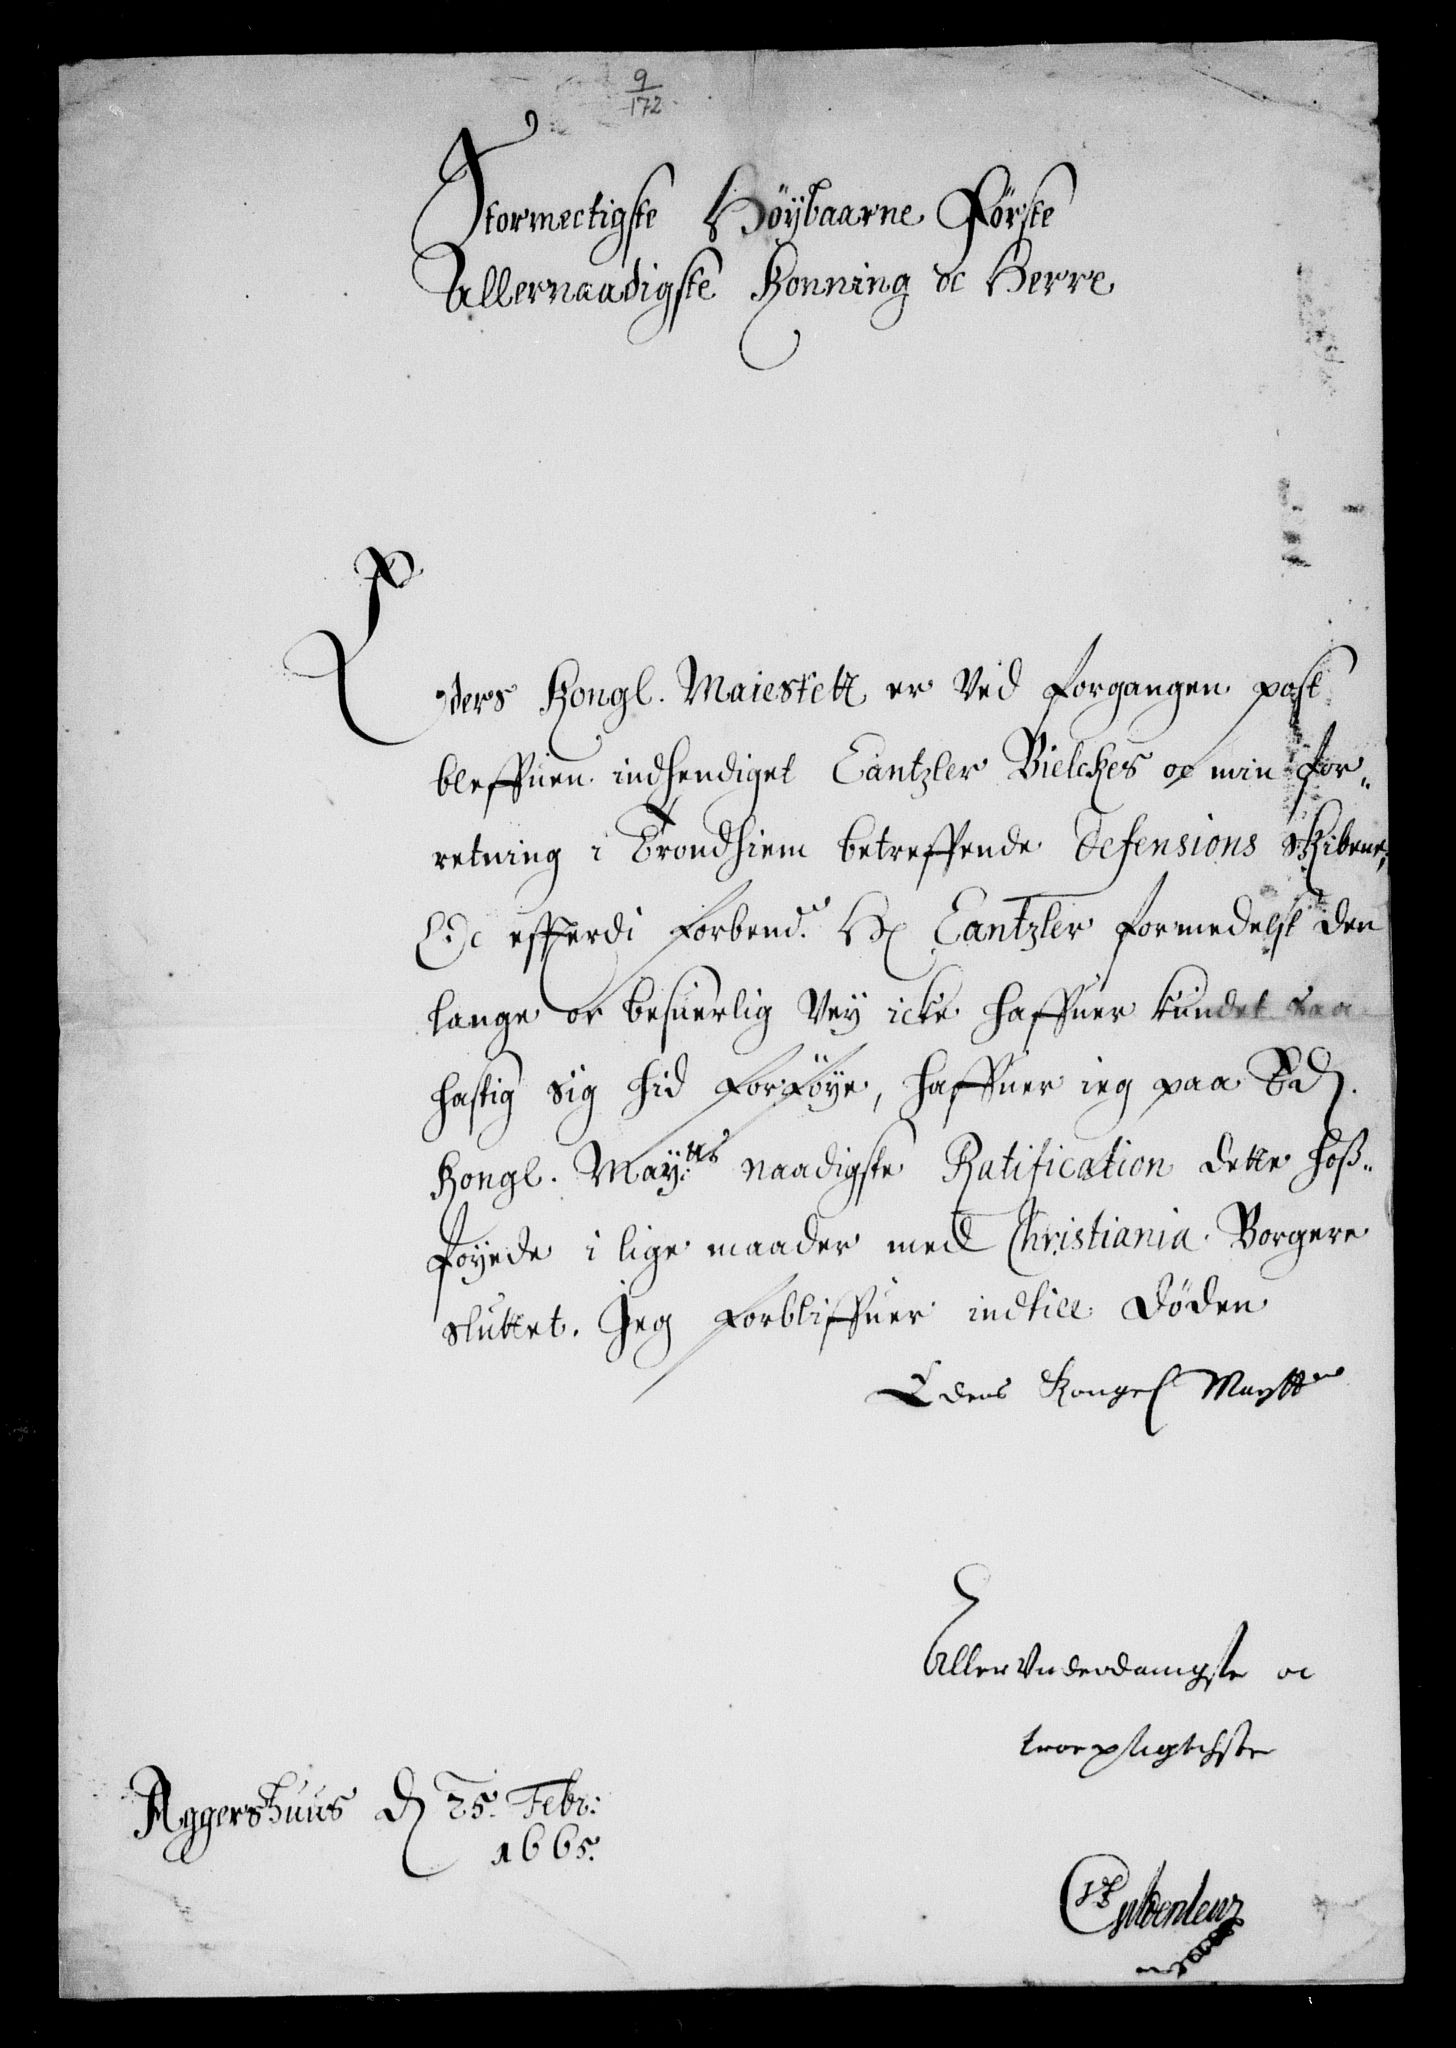 9
172.
Stormectigste Höybaarne Förste
Allernaadigste Konning oc Herre
Eders Kongl. Maiestett er Ved forgangen post
bleffuen indsendiget Cantzler Bielckes oc min for„
retning i Trondhiem betreffende Defensions Skibene,
Oc efterdi forbend.te Hr Cantzler formedelst den
lange oc besuerlig Vey icke haffuer kundet saa
hastig sig hid forföye, haffuer ieg paa Ed.
Kongl. May:tts naadigste Ratification dette hoß„
föyede i lige maader med Christiania Borgere
sluttet. Jeg forbliffuer indtill döden
Eders Kongel Maytts
Allervnderdanigste oc
troepligtigste
Aggershuus d 25. Febr:
1665.
Gyldenleuz